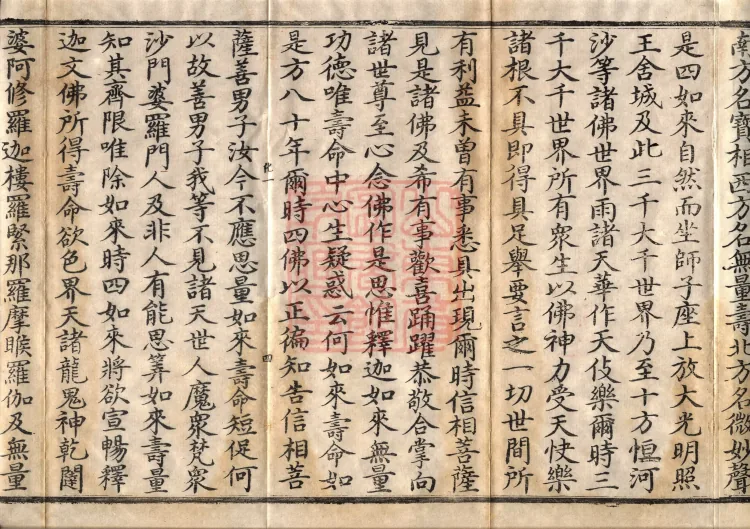 南方名寶相西方名無量壽北方名微妙聲
是四如來自然而坐師子座上放大光明照
王舍城及此三千大千世界乃至十方恒河
沙等諸佛世界雨諸天華作天伎樂爾時三
千大千世界所有衆生以佛神力受天快樂
諸根不具即得具足舉要言之一切世間所
有利益未曾有事悉具出現爾時信相菩薩
見是諸佛及希有事歡喜踊躍恭敬合掌向
諸世尊至心念佛作是思惟釋迦如來無量
功德唯壽命中心生疑惑云何如來壽命如
是方八十年爾時四佛以正徧知告信相菩
化一 四
薩善男子汝今不應思量如來壽命短促何
以故善男子我等不見諸天世人魔衆梵衆
沙門婆羅門人及非人有能思筭如來壽量
知其齊限唯除如來時四如來將欲宣暢釋
迦文佛所得壽命欲色界天諸龍鬼神乾闥
婆阿修羅迦樓羅緊那羅摩睺羅伽及無量